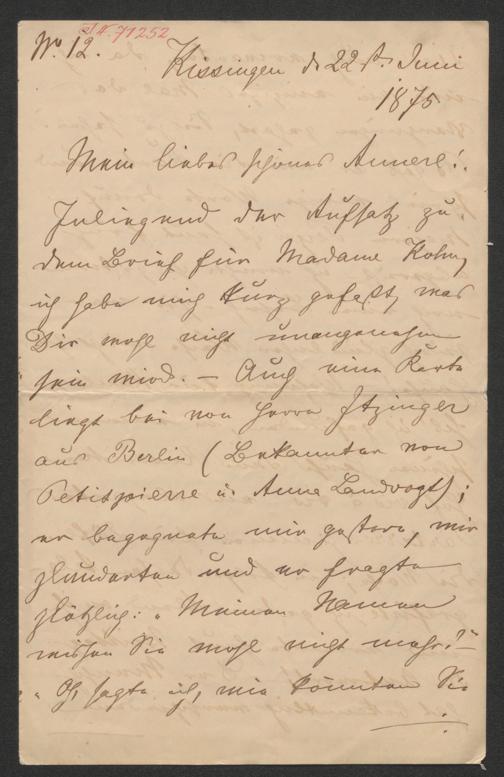 No 12.
J.N. 71252
Kissingen d. 22st. Juni
1875
Mein liebes schönes Annerl!
Inliegend der Aufsatz zu
dem Brief für Madame Kohn,
ich habe mich kurz gefaßt, was
Dir wohl nicht unangenehm
sein wird. – Auch eine Karte
liegt bei von Herrn Itzinger
aus Berlin (Bekannter von
Petitpierre u. Anna Landvogt);
er begegnete mir gestern, wir
plauderten und er fragte
plötzlich: „Meinen Namen
wissen Sie wohl nicht mehr?" –
„O, sagte ich, wie könnten Sie